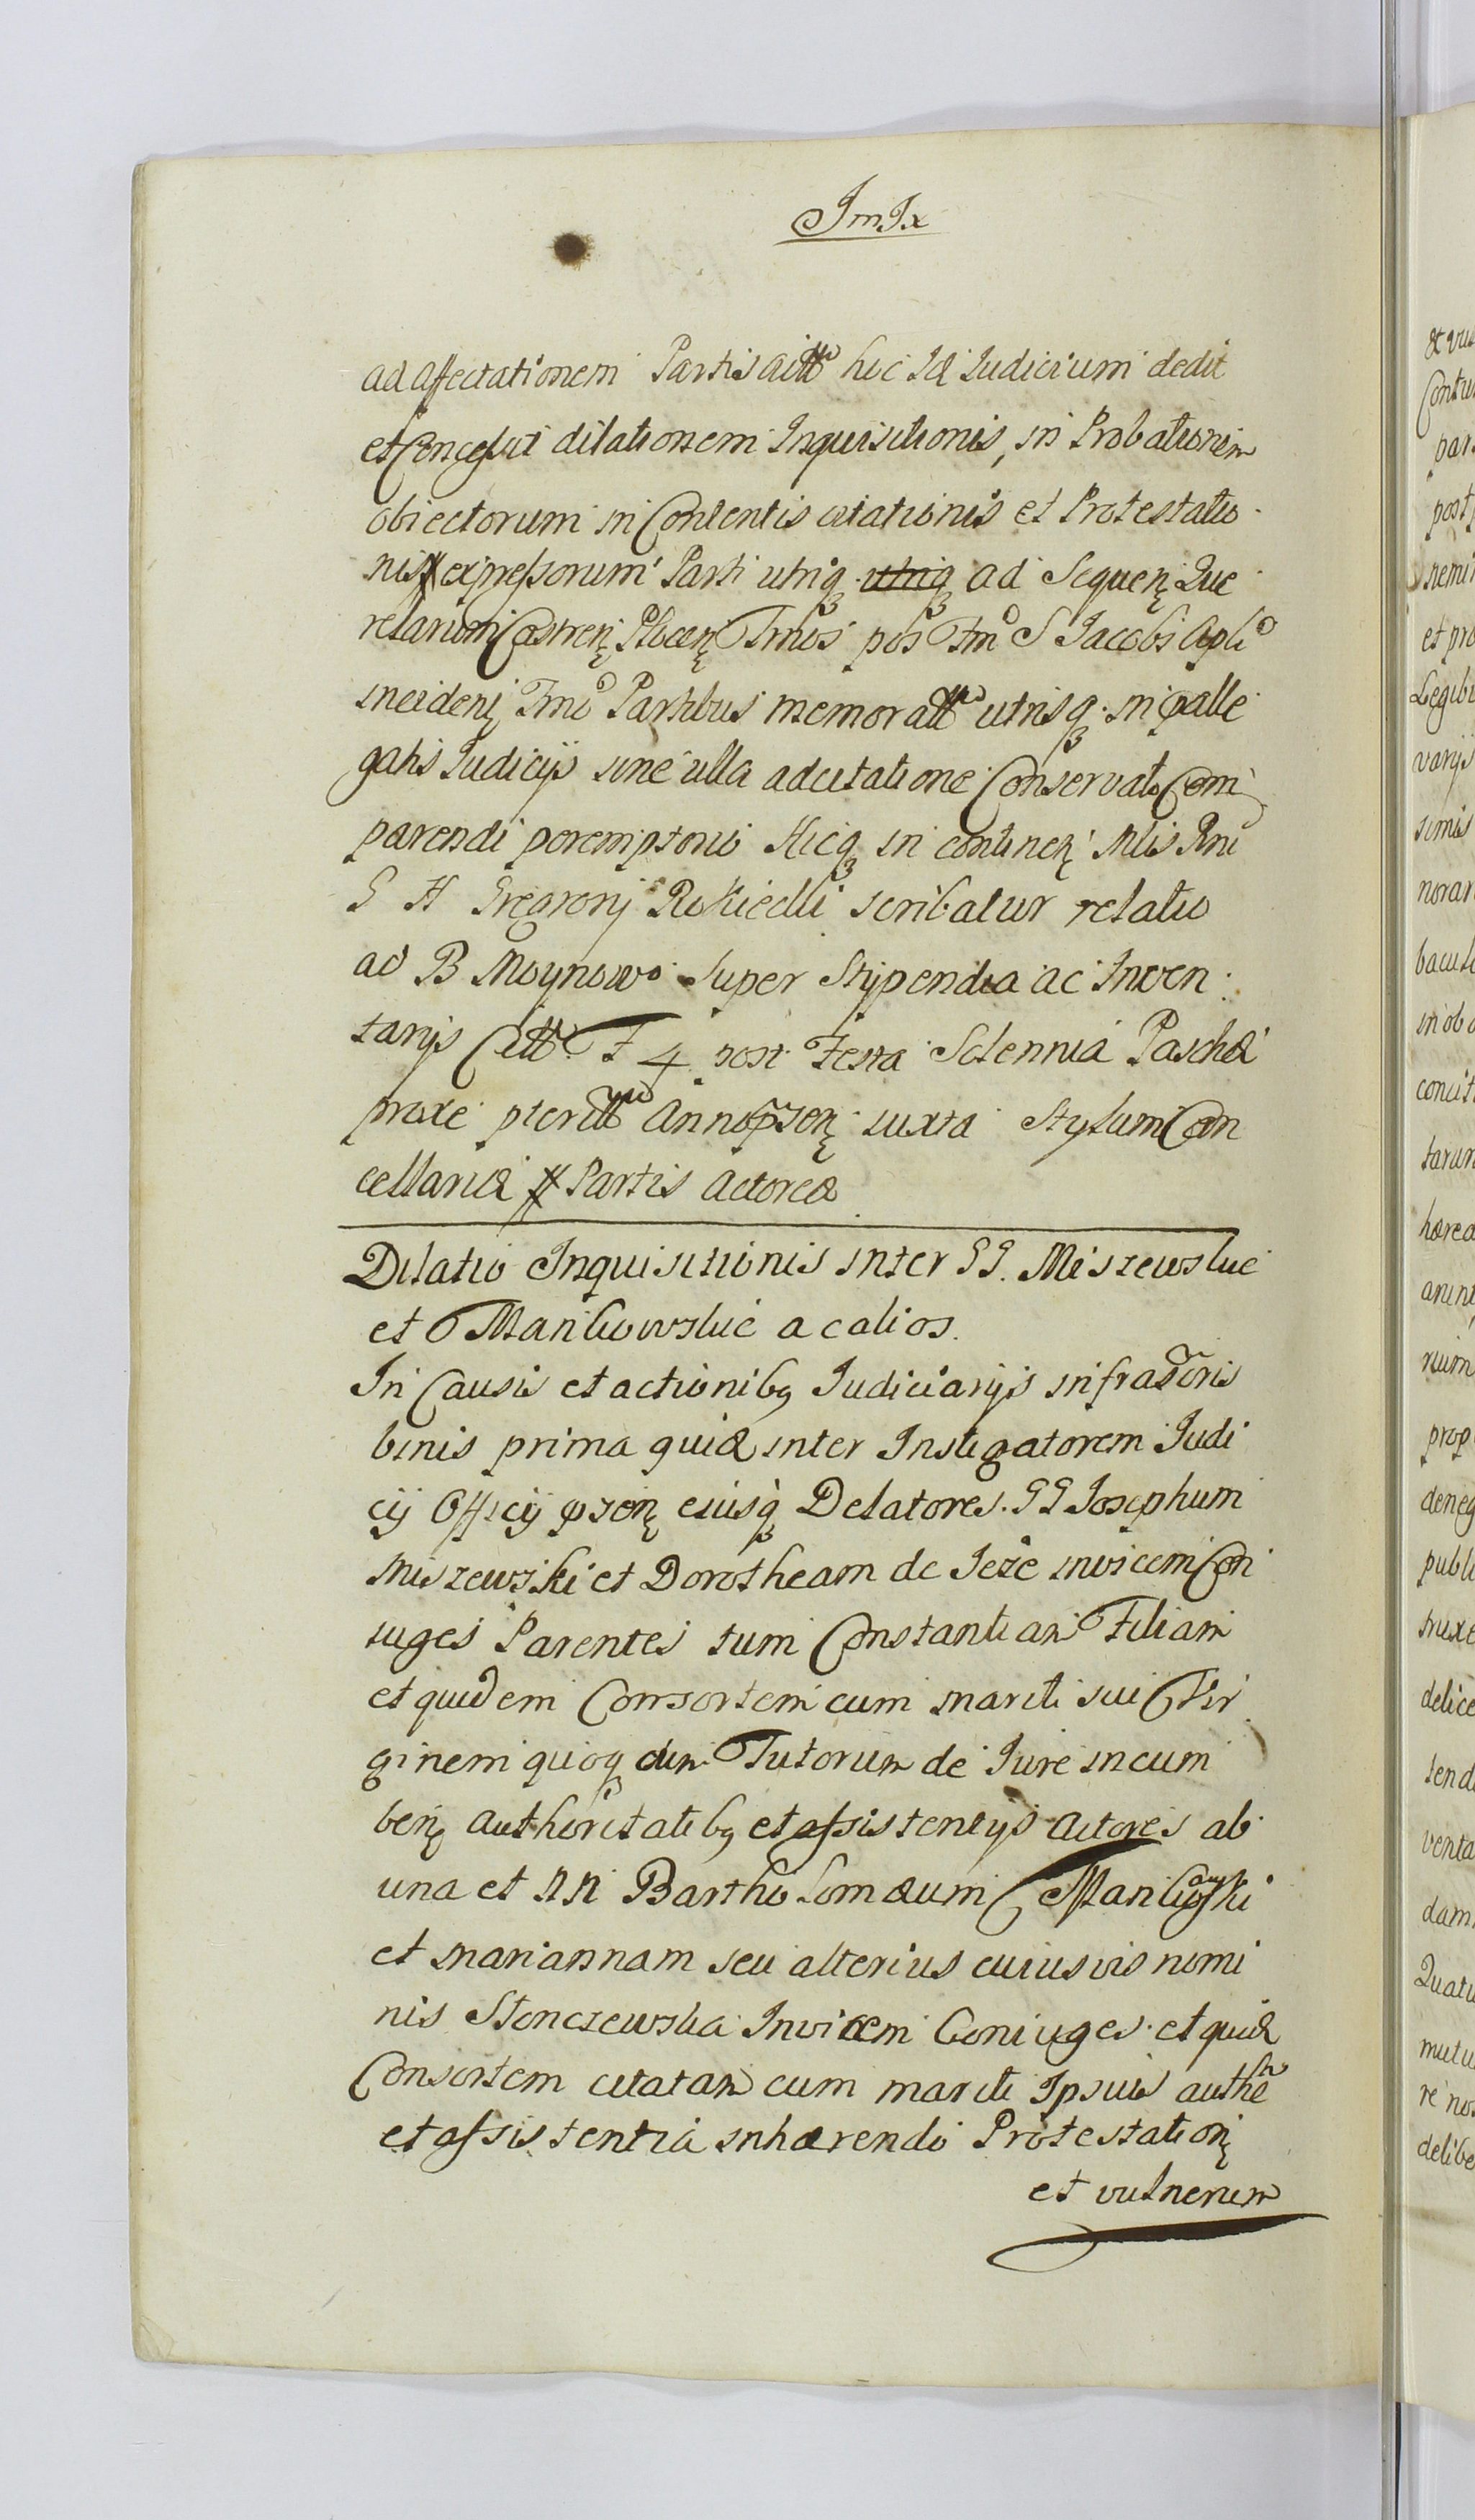 ad affectationem Partis hic Id Iudicium dedit
et Concessit dilationem Inquisitionis, in Probationem
obiectorum in Contentis citationis et Protestatio
nis expressorum Parti utriq ad Sequen Que
relarum Castren Plocen Tmos pos Tm S Jacobi Apli
inciden Tmo Partibus memoratt utrisq in
gatis Iudicijs sine ulla adcitatione Conservato Com
parendi peremptorio Hicq in continen Mlis Rni
G H Gregorij Rokicelli scribatur relatio
ad B Moynowo Super Stipendia ac Inven
tarijs Citt F 4 post Festa Solennia Paschæ
proxe pteritt Anno iuxta Stylum Can
cellariæ Partis Actoreæ
Dilatio Inquisitionis inter GG. Miszewskie
et Mankowskie ac alios.
In Causis et actionibq Iudiciarijs infrascris
binis prima quid inter Instigatorem Iudi
cij Officij eiusq Delatores. GG Josephum
Miszewski et Dorotheam de Jeże invicem Con
iuges Parentes tum Constantiam Filiam
et quidem Consortem cum mariti sui Vir
ginem quoq cum Tutorum de Iure incum
ben authoritatibq et assistentijs Actores ab
una et NN Bartholomæum Mankowski
et Mariannam seu alterius cuiusvis nomi
nis Stonczewska Invicem Coniuges et quid
Consortem citatam cum mariti Ipsius authe
et assistentia inhærendo Protestation
et vulnerum